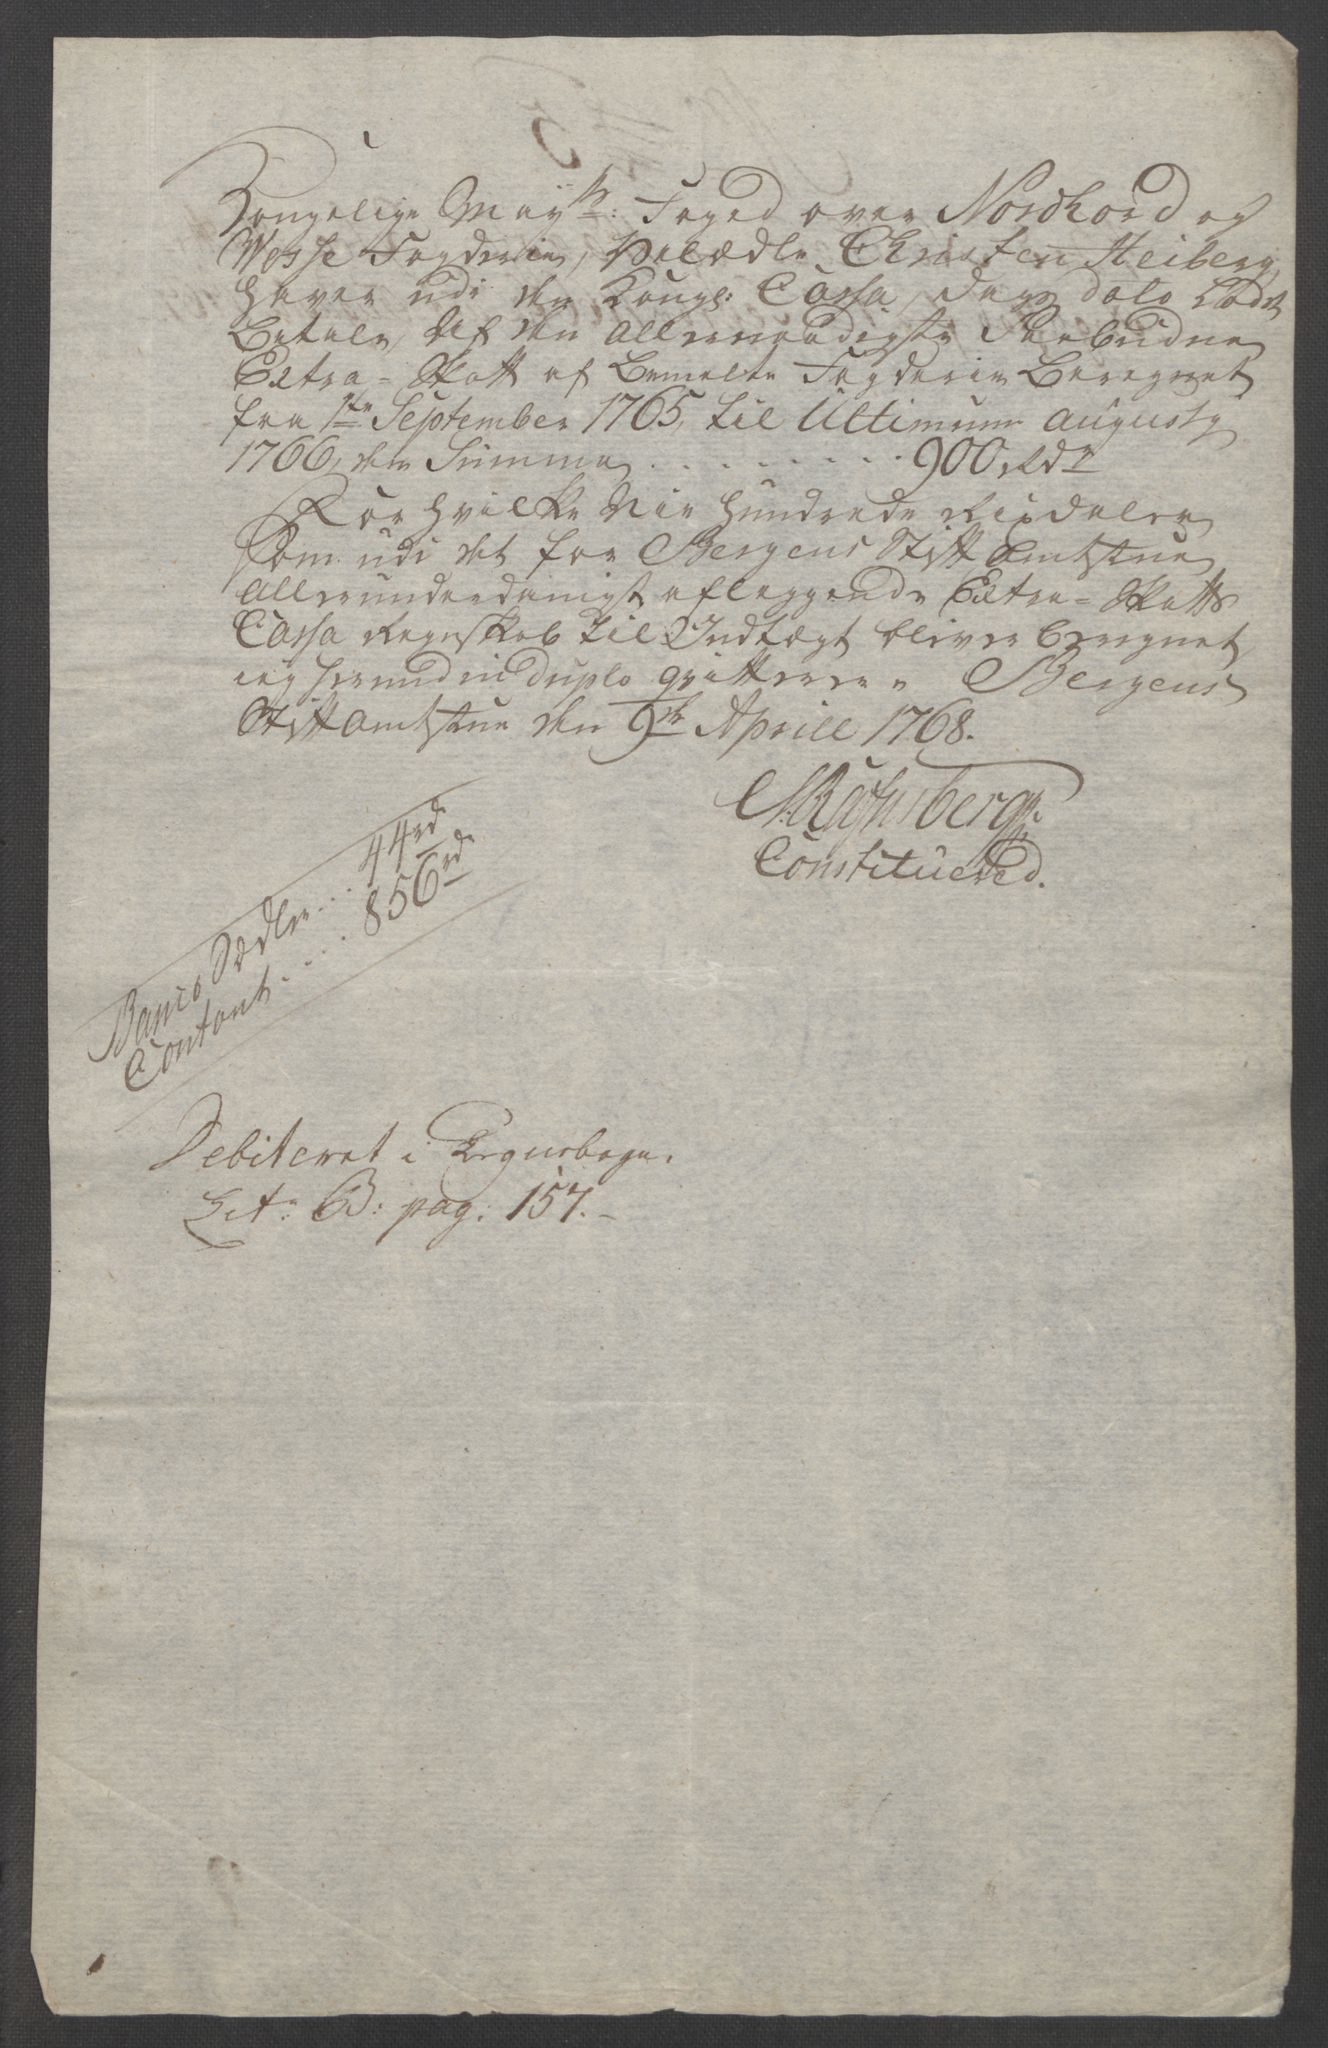 Kongelige Mayts: Foged over Nordhord og
Wosse Fogderie, Velædle Christen Heiberg,
haver udi den Kongl: Cassa, dags dato ladet
Betale, Af den Allernaadigste Paabudne
Extra-Skatt af Bemelte Fogderie Beregnet
fra 1ste September 1765, til Ultimum Augusty
1766, den Summa . . . . . . . . . 900 rdr
For hvilke Nie hundrede Rixdaler
som udi det for Bergens Stift Amtstue
Allerunderdanigst aflæggende Extra-Skatts
Cassa Regnskab til Indtægt bliver beregnet
ieg herved in duplo qvitterer. Bergens
Stift Amtstue den 9de Aprill 1768.
Constituered.
Banco Sedler . . 44 rd
Contant . . . . 856 rd
Debiteret i Regnebogen
Lit: B: pag: 157.-